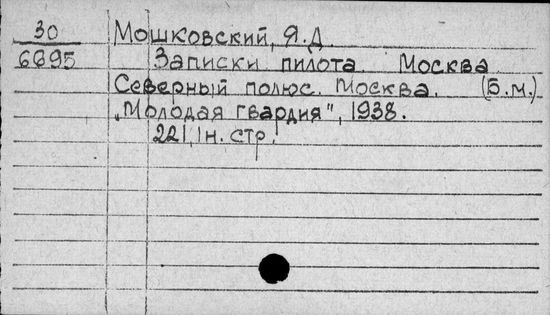 30 Мошковский, Я.Д.
6695 Записки пилота Москва
Северный полюс. Москва. (Б.м.)
„Молодая гвардия", 1938.
221, 1н. стр.